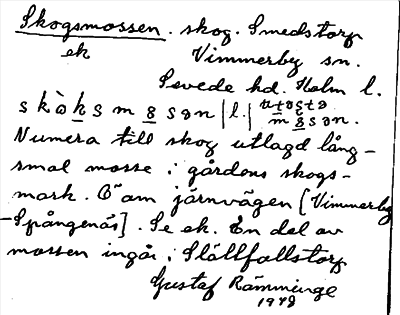 Skogsmossen. skog. Smedstorp
ek Vimmerby sn.
Sevede hd. Kalm l.
skòksm8sən |l.| 
m8sən.
Numera till skog utlagd lång-
smal mosse i gårdens skogs-
mark. Ö am järnvägen [Vimmerby
-Spångenäs]. Se ek. En del av
mossen ingår i Slättfallstorp
Gustaf Rämminge